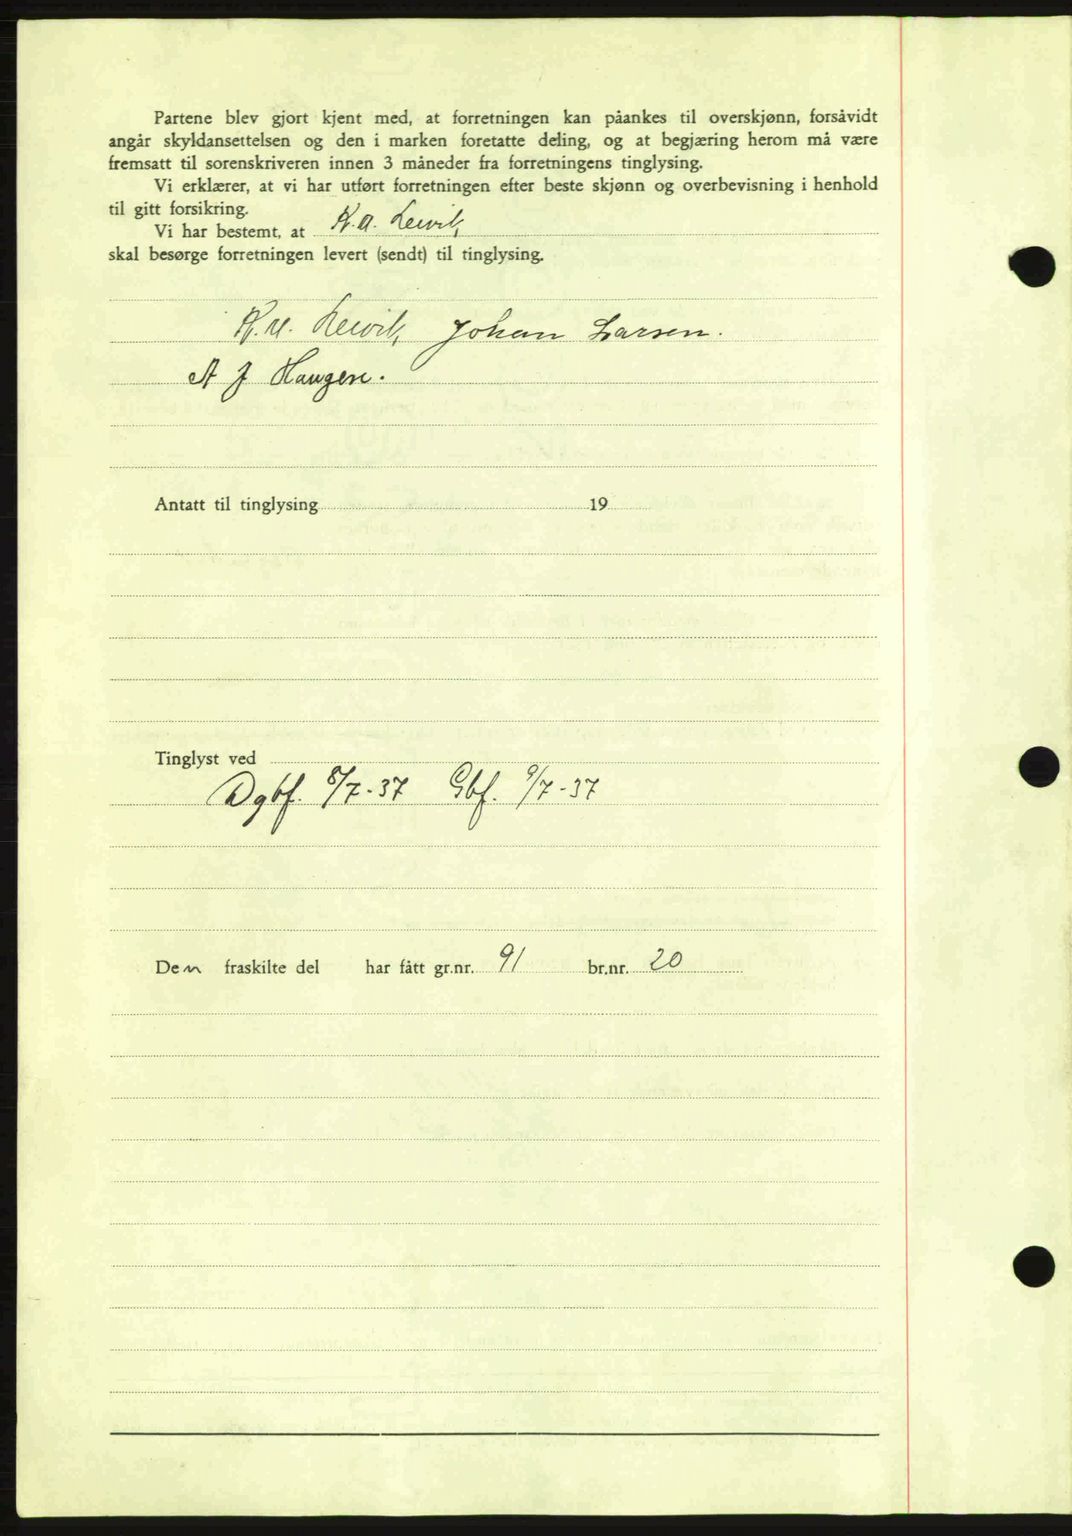 Partene blev gjort kjent med, at forretningen kan påankes til overskjønn, forsåvidt
angår skyldansettelsen og den i marken foretatte deling, og at begjæring herom må være
fremsatt til sorenskriveren innen 3 måneder fra forretningens tinglysing.
Vi erklærer, at vi har utført forretningen efter beste skjønn og overbevisning i henhold
til gitt forsikring.
Vi har bestemt, at K. A. Leivik,
skal besørge forretningen levert (sendt) til tinglysing.
K. A. Leivik, Johan Larsen.
A J Haugen.
Antatt til tinglysing 19
Tinglyst ved
Dgbf. 8/7-37 Gbf. 9/7-37
Den fraskilte del har fått gr.nr. 91 br.nr. 20